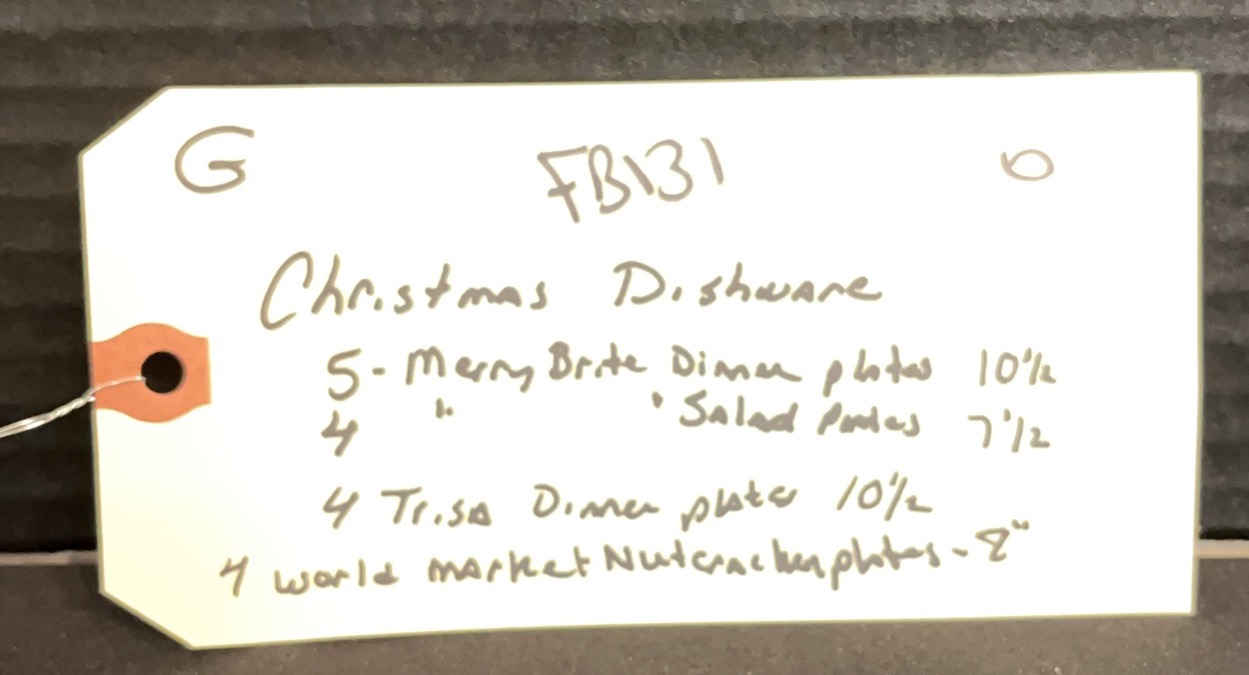 G FB131 O
Christmas Dishware
5 - Merry Brite Dinner plates 10 1/2
4 " " Salad Plates 7 1/2
4 Trisa Dinner plates 10 1/2
4 world market Nutcracker plates - 8"